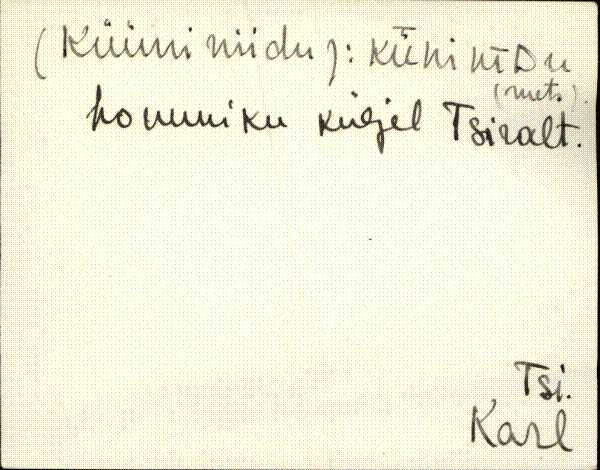 (Küüni niidu): kǖni nīDu
(mets).
hommiku küljel Tsiralt.
Tsi.
Karl